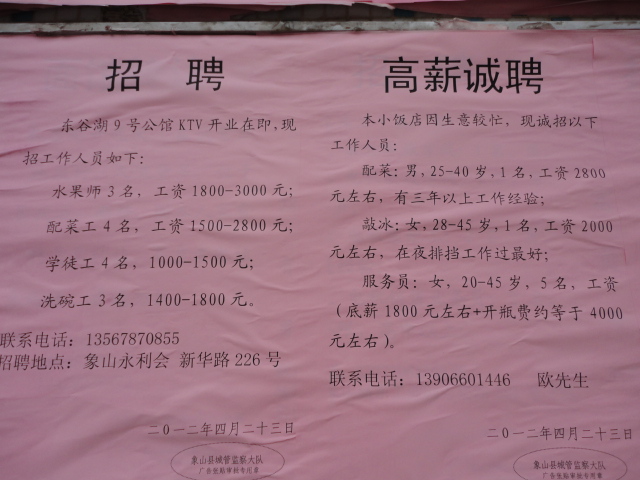 招 聘
东谷湖9号公馆KTV开业在即,现
招工作人员如下:
水果师3名,工资1800-3000元;
配菜工4名,工资1500-2800元;
学徒工4名,1000-1500元;
洗碗工3名,1400-1800元。
联系电话:13567870855
招聘地点:象山永利会 新华路226号
二0一二年四月二十三日
象山县城管监察大队
广告张贴审核专用章
高薪诚聘
本小饭店因生意较忙,现诚招以下
工作人员:
配菜:男,25-40岁,1名,工资2800
元左右,有三年以上工作经验;
敲冰:女,28-45岁,1名,工资2000
元左右,在夜排挡工作过最好;
服务员:女,20-45岁,5名,工资
(底薪1800元左右+开瓶费约等于4000
元左右)。
联系电话:13906601446 欧先生
二0一二年四月二十三日
象山县城管监察大队
广告张贴审核专用章